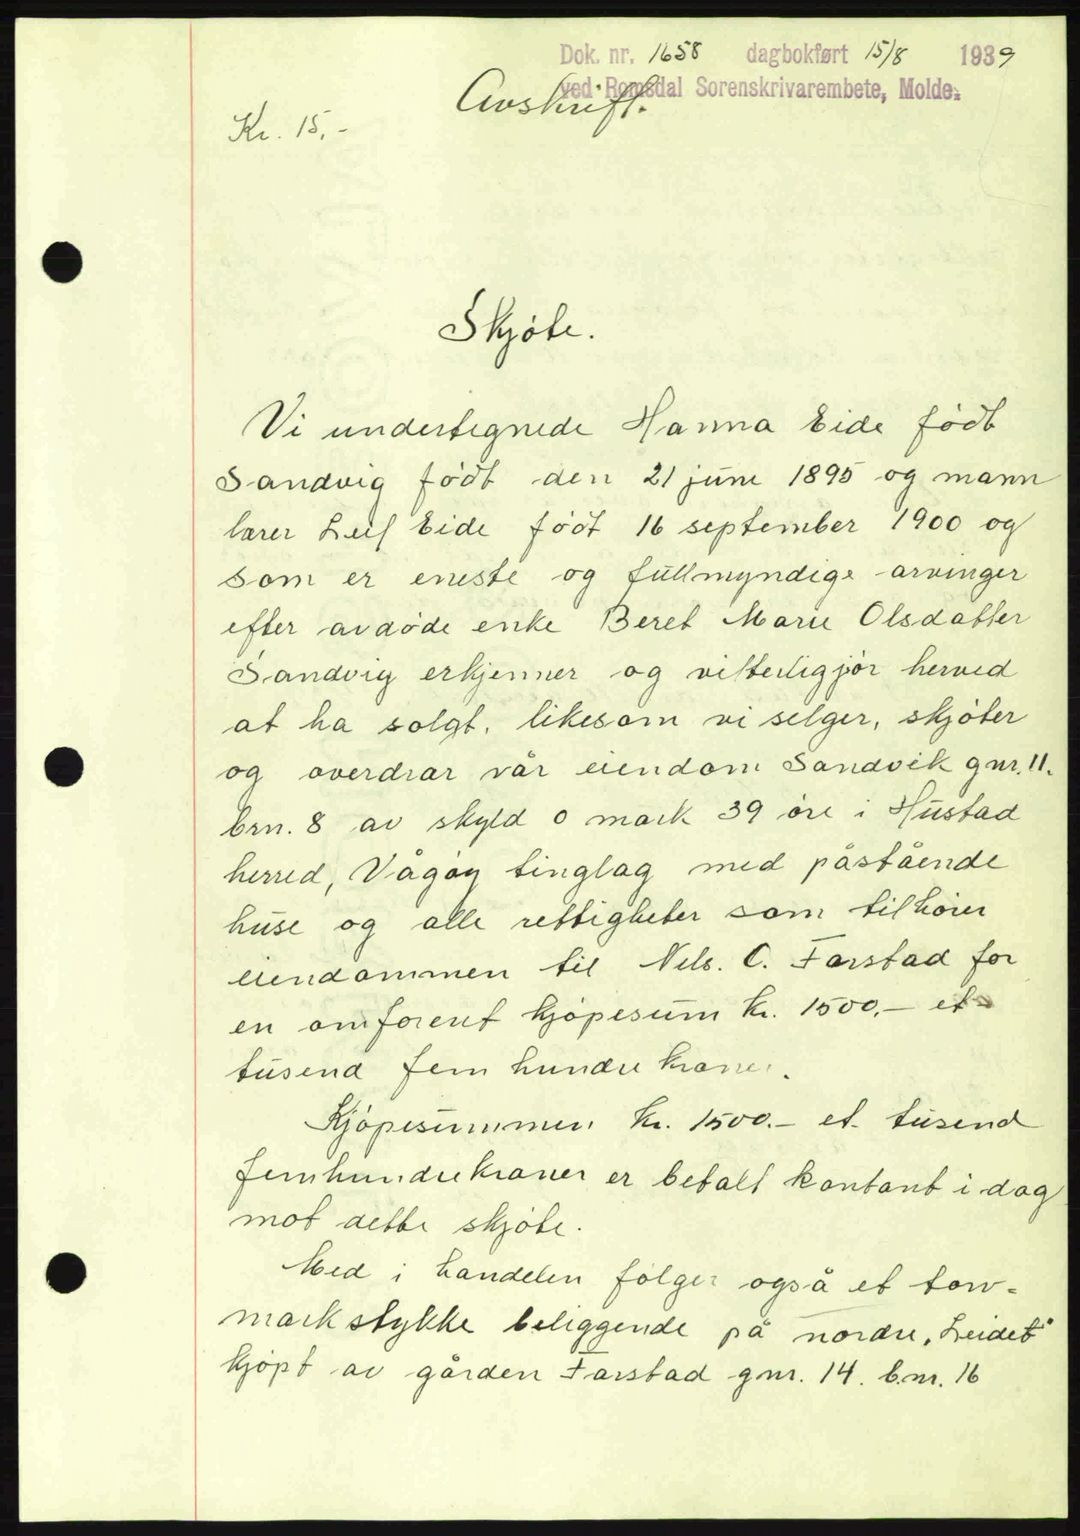 Dok. nr. 1658 dagbokført 15/8 1939
ved Romsdal Sorenskrivarembete, Molde.
Avskrift.
Kr. 15,-
Skjøte.
Vi undertegnede Hanna Eide født
Sandvig født den 21 juni 1895 og mann
lærer Leif Eide født 16 september 1900 og
som er eneste og fullmyndige arvinger
efter avdøde enke Beret Marie Olsdatter
Sandvig erkjenner og vitterliggjør herved
at ha solgt, likesom vi selger, skjøter
og overdrar vår eiendom Sandvik gnr. 11.
brn. 8 av skyld 0 mark 39 øre i Hustad
herred, Vågøy tinglag med påstående
huse og alle rettigheter som tilhører
eiendommen til Nils. O. Farstad for
en omforent kjøpesum kr. 1500,- et
tusend fem hundre kroner.
Kjøpesummen kr. 1500.- et tusend
femhundrekroner er betalt kontant i dag
mot dette skjøte.
Med i handelen følger også et torv-
markstykke beliggende på nordre „Leidet"
kjøpt av gården Farstad gnr. 14. b.nr. 16